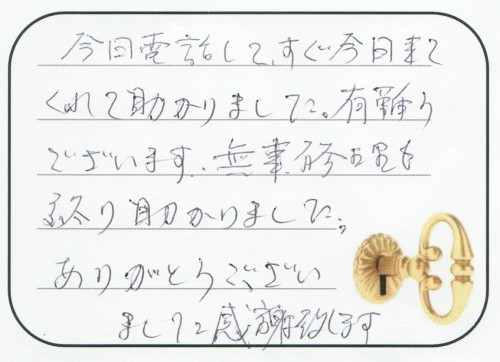 今回電話して、すぐ今日来て
くれて助かりました。有難う
ございます、無事修理も
終り助かりました。
ありがとうござい
ました感謝致します